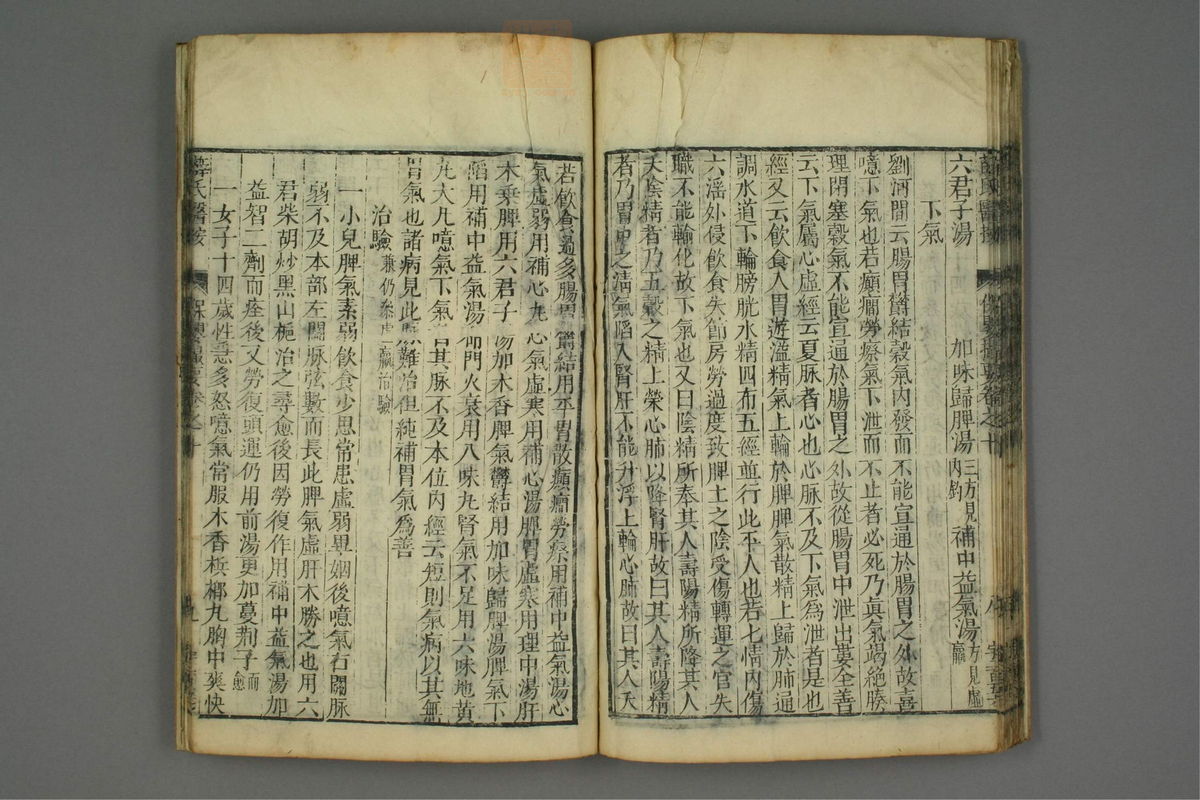 六君子湯　加味歸脾湯三方見內鈞　補中益氣湯方見虛羸
下氣
劉河間云腸胃鬱結穀氣內發而不能宣通於腸胃之外故喜
噫下氣也若癲癇勞瘵氣下泄而不止者必死乃眞氣竭絕腠
理閉塞穀氣不能宣通於腸胃之外故從腸胃中泄出婁全善
云下氣屬心虛經云夏脉者心也心脉不及下氣為泄者是也
經又云飲食入胃遊溢精氣上輸於脾脾氣散精上歸於肺通
調水道下輸膀胱水精四布五經並行此平人也若七情內傷
六淫外侵飲食失節房勞過度致脾土之陰受傷轉運之官失
職不能輸化故下氣也又曰陰精所奉其人壽陽精所降其人
夭陰精者乃五穀之精上榮心肺以降腎肝故曰其人壽陽精
者乃胃中之淸氣陷入腎肝不能升浮上輸心肺故曰其人夭
若飲食過多腸胃鬱結用平胃散癲癇勞瘵用補中益氣湯心
氣虛弱用補心丸心氣虛寒用補心湯脾胃虛寒用理中湯肝
木乗脾用六君子湯加木香脾氣鬱結用加味歸脾湯脾氣下
陷用補中益氣湯命門火衰用八味丸腎氣不足用六味地黃
丸大凡噫氣下氣者其脉不及本位內經云短則氣病以其無
胃氣也諸病見此脉難治但純補胃氣爲善
治驗兼仍叅虛羸治驗
一小兒脾氣素弱飲食少思常患虛弱畢姻後噫氣右關脉
弱不及本部左關脉弦數而長此脾氣虛肝木勝之也用六
君柴胡炒黑山梔治之尋愈後因勞復作用補中益氣湯加
益智二劑而痊後又勞復頭運仍用前湯更加蔓荆子而愈
一女子十四歲性急多怒噫氣常服木香檳榔丸胸中爽快
薛氏醫按
保嬰撮要卷之十